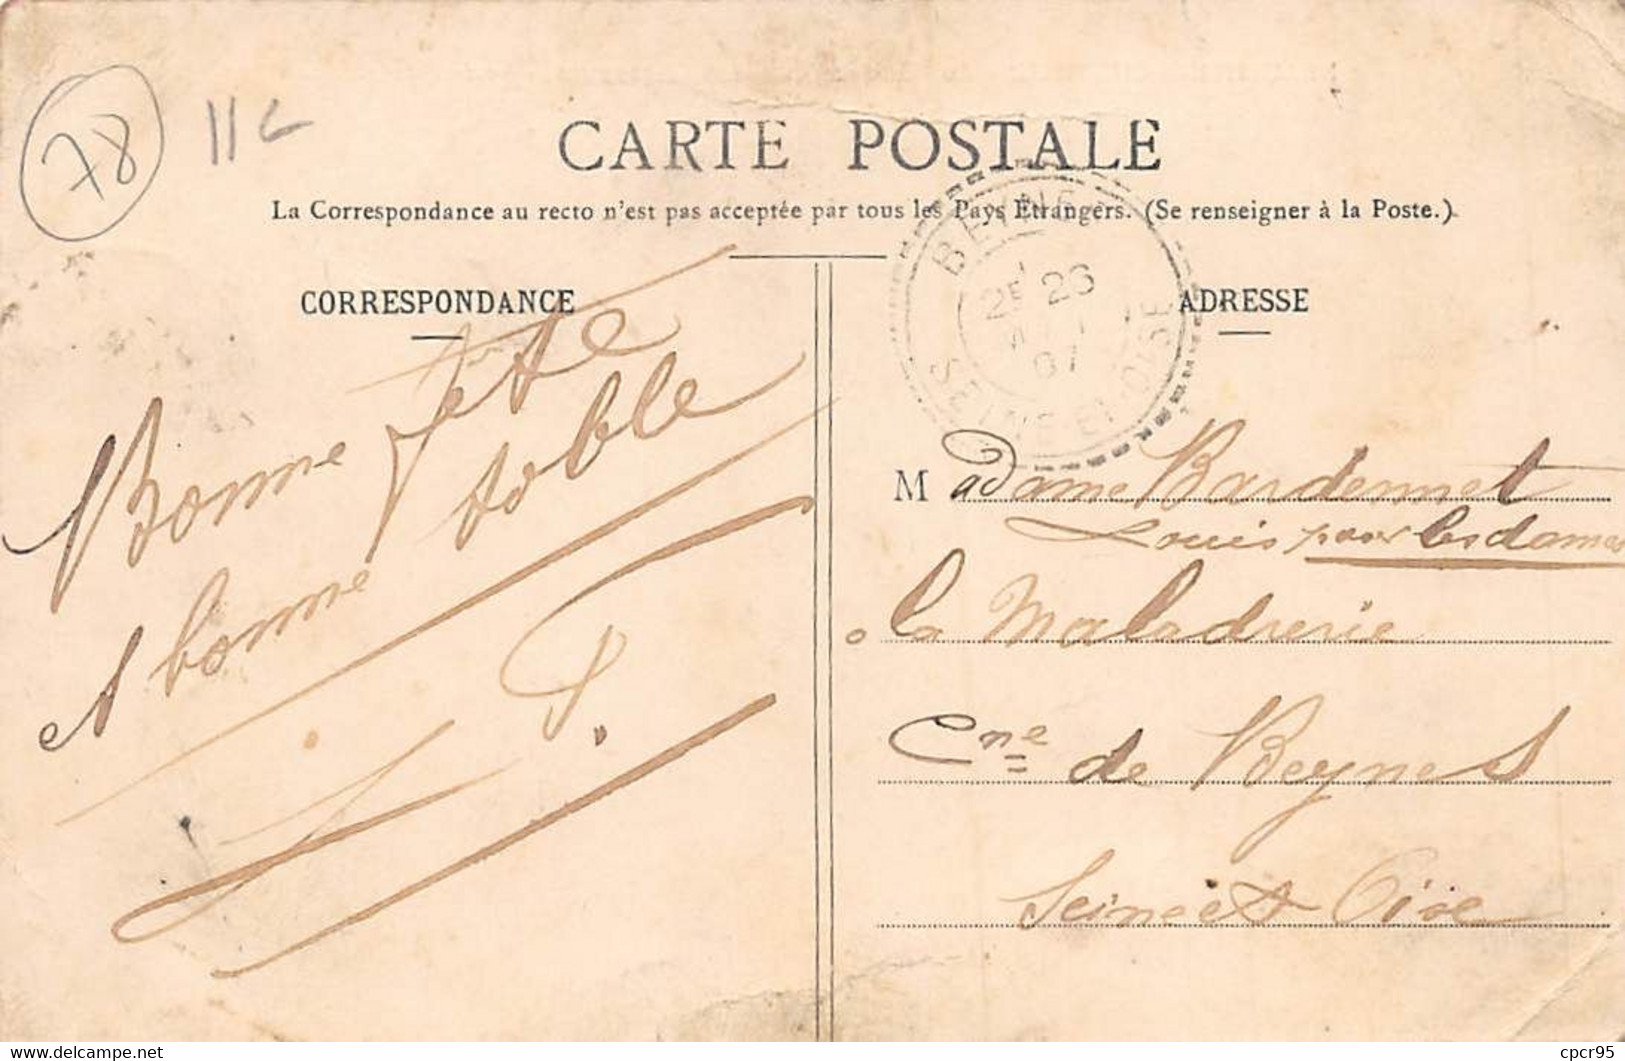 78
11 c
CARTE POSTALE
La Correspondance au recto n'est pas acceptée par tous les Pays Etrangers. (Se renseigner à la Poste.)
BEYNES
2E 26
07
SEINE ET OISE
CORRESPONDANCE
Bonne fête
et bonne table
ADRESSE
Madame Bardennet
Louis pour les dames
à la Maladrerie
Cne de Beynes
Seine et Oise
delcampe.net
cpcr95